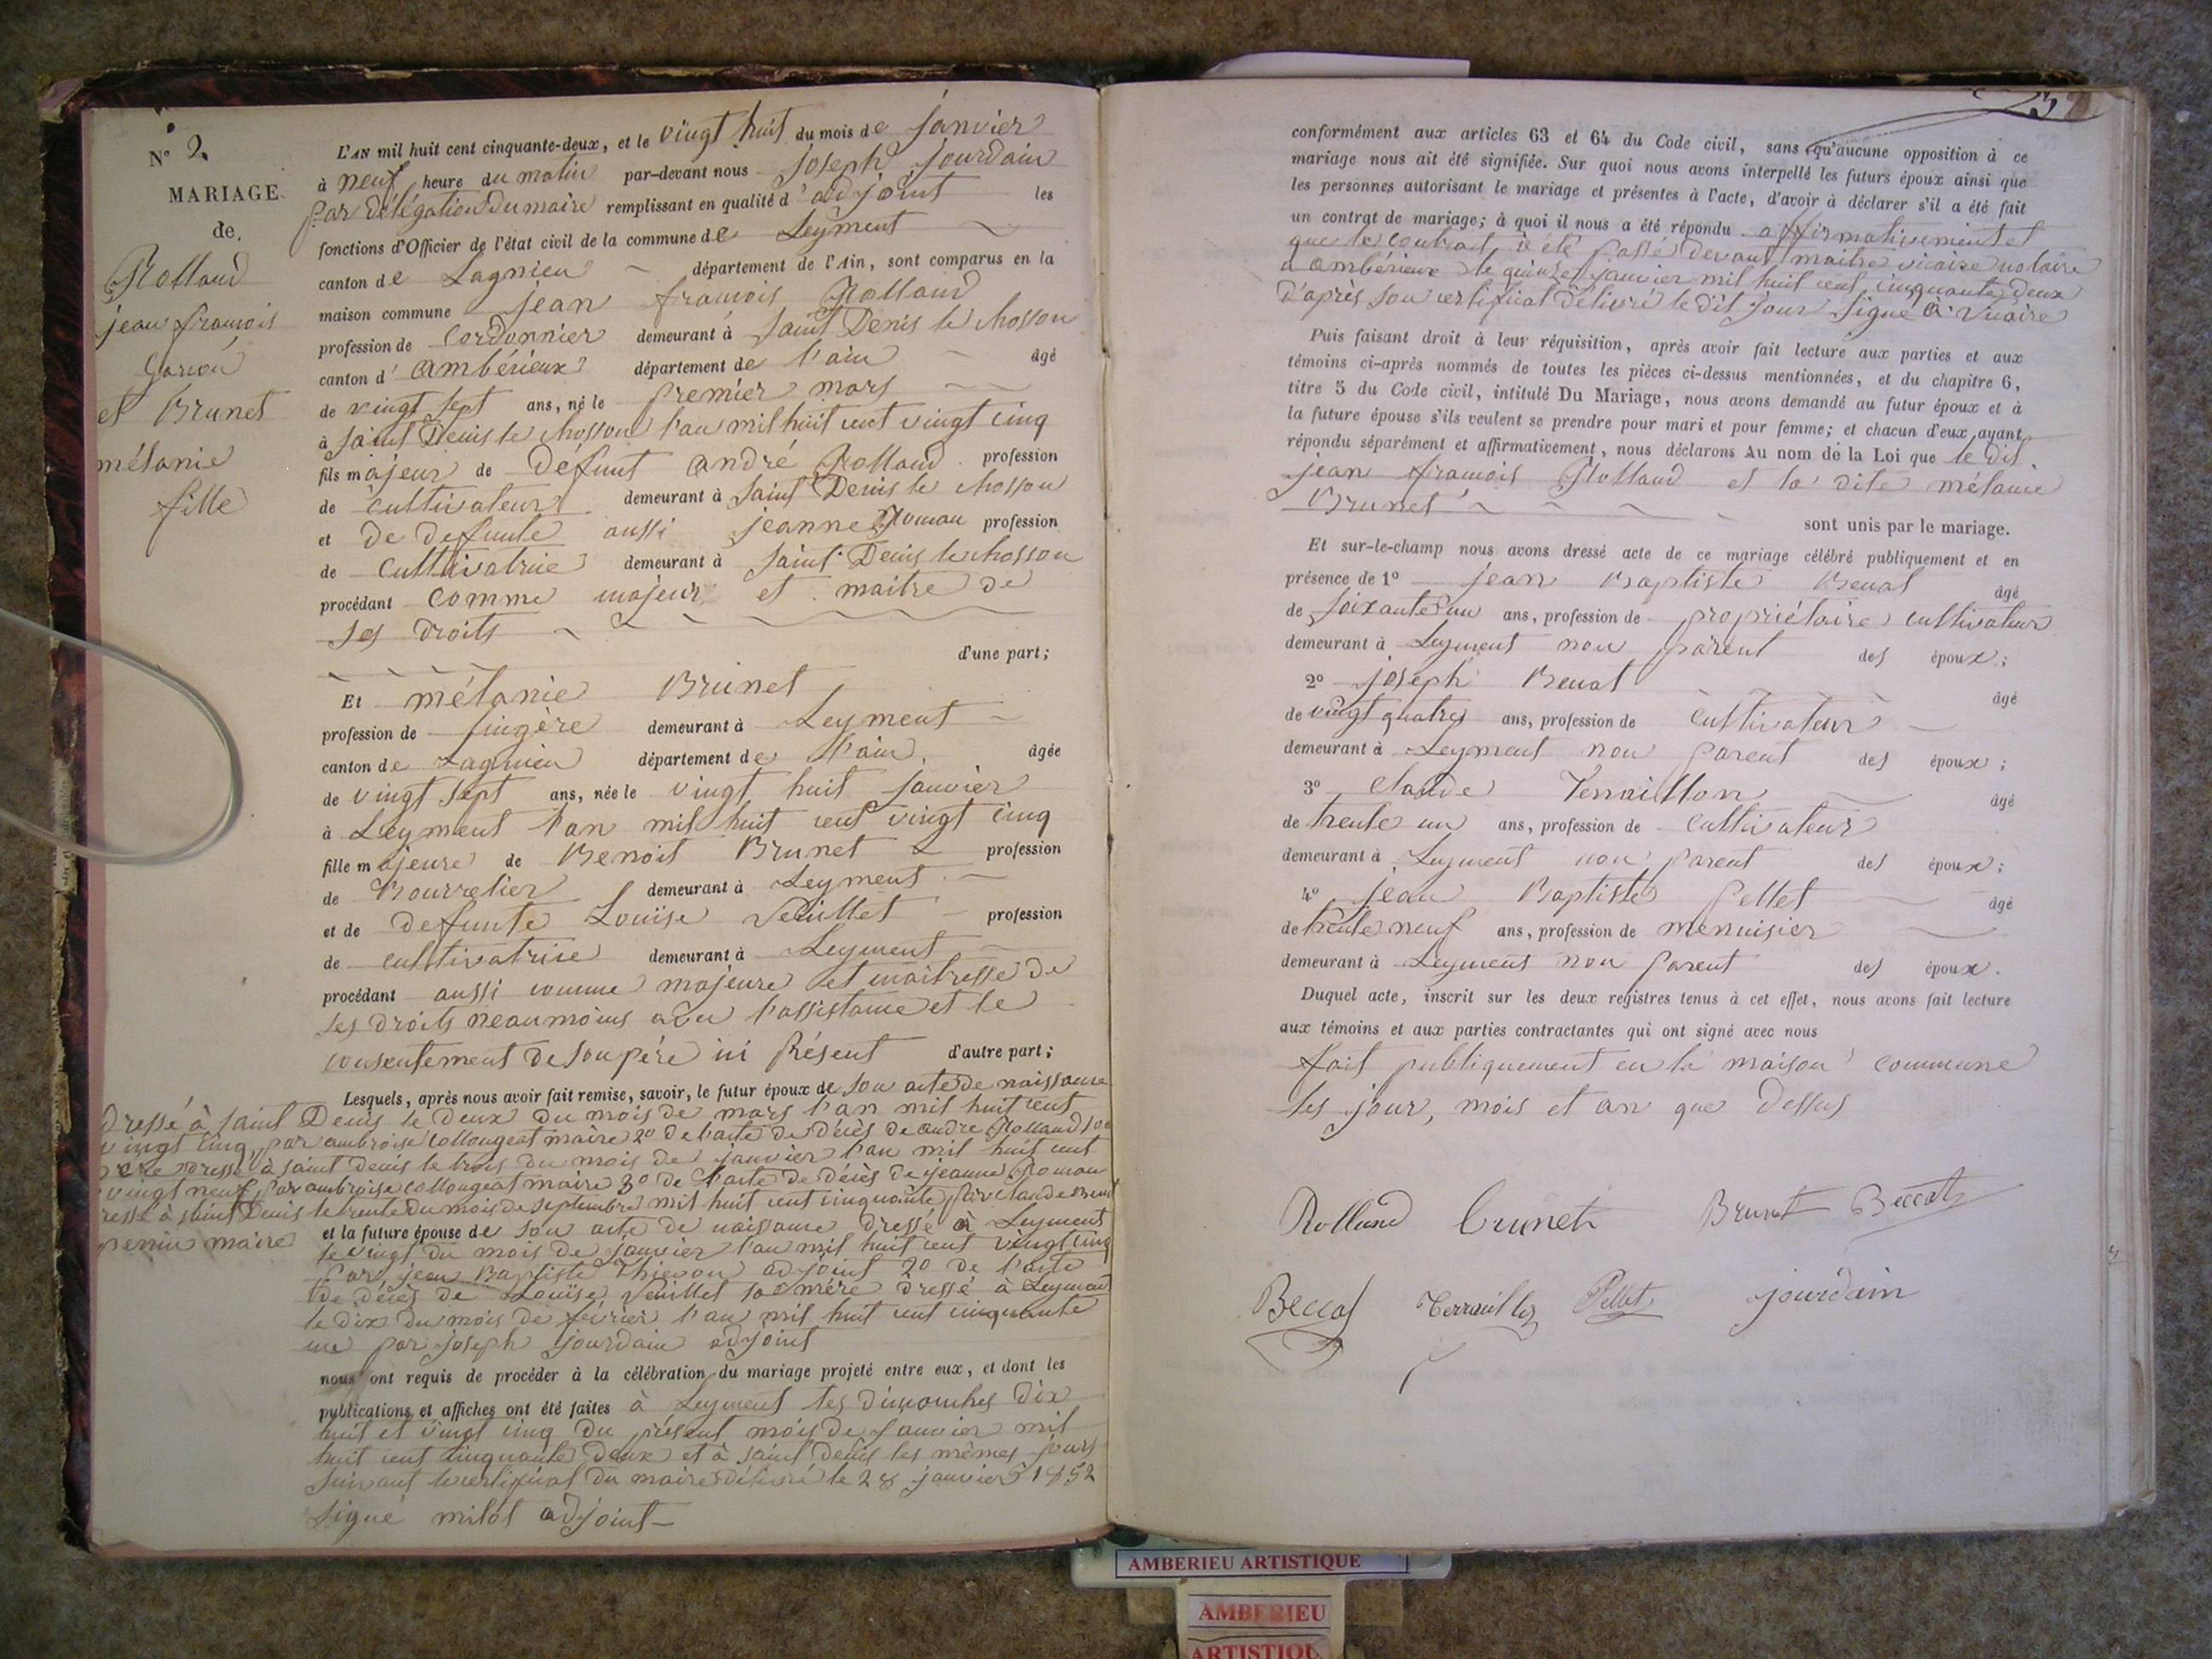 N° 2.
MARIAGE
de
Rolland
jean françois
Garçon
et Brunet
mélanie
fille
L'AN mil huit cent cinquante-deux, et le vingt huit du mois de janvier
à neuf heure du matin par-devant nous joseph jourdain
par délégation du maire remplissant en qualité d'adjoint les
fonctions d'Officier de l'état civil de la commune de Leyment
canton de Lagnieu département de l'Ain, sont comparus en la
maison commune jean françois Rolland
profession de Cordonnier demeurant à Saint Denis le chosson
canton d'ambérieux département de l'ain âgé
de vingt sept ans, né le premier mars
à Saint Denis le chosson l'an mil huit cent vingt cinq
fils majeur de défunt andré Rolland profession
de cultivateur demeurant à Saint Denis le chosson
et de defunte aussi jeanne Roman profession
de cultivatrice demeurant à Saint Denis le chosson
procédant comme majeur et maitre de
ses droits
d'une part;
Et mélanie Brunet
profession de lingère demeurant à Leyment
canton de Lagnieu département de l'ain âgée
de vingt sept ans, née le vingt huit janvier
à Leyment l'an mil huit cent vingt cinq
fille majeure de Benoit Brunet profession
de Bourrelier demeurant à Leyment
et de defunte Louïse Veuillet profession
de cultivatrice demeurant à Leyment
procédant aussi comme majeure et maitresse de
ses droits neanmoins avec l'assistance et le
consentement de son père ici présent d'autre part;
Lesquels, après nous avoir fait remise, savoir, le futur époux de son acte de naissance
dressé à saint Denis le deux du mois de mars l'an mil huit cent
vingt cinq par ambroise Collongeat maire 2° de l'acte de décès de andré Rolland son
père dressé à saint denis le trois du mois de janvier l'an mil huit cent
vingt neuf par ambroise collongeat maire 3° de l'acte de décès de jeanne Roman
dressé à saint Denis le trente du mois de septembre mil huit cent cinquante par claude
perrin maire et la future épouse de son acte de naissance dressé à Leyment
le vingt du mois de janvier l'an mil huit cent vingt cinq
par jean Baptiste Thievon adjoint 2° de l'acte
de décès de Louise Veuillet sa mère dressé à Leyment
le dix du mois de février l'an mil huit cent cinquante
un par joseph jourdain adjoint
nous ont requis de procéder à la célébration du mariage projeté entre eux, et dont les
publications et affiches ont été faites à Leyment les dimanches dix
huit et vingt cinq du présent mois de janvier mil
huit cent cinquante deux et à saint denis les mêmes jours
suivant le certificat du maire délivré le 28 janvier 1852
signé milot adjoint
conformément aux articles 63 et 64 du Code civil, sans qu'aucune opposition à ce
mariage nous ait été signifiée. Sur quoi nous avons interpellé les futurs époux ainsi que
les personnes autorisant le mariage et présentes à l'acte, d'avoir à déclarer s'il a été fait
un contrat de mariage; à quoi il nous a été répondu affirmativement et
que le contrat a été passé devant maitre vicaire notaire
a ambérieux le quinze janvier mil huit cent cinquante deux
d'après son certificat délivré le dit jour signé Vicaire
Puis faisant droit à leur réquisition, après avoir fait lecture aux parties et aux
témoins ci-après nommés de toutes les pièces ci-dessus mentionnées, et du chapitre 6,
titre 5 du Code civil, intitulé Du Mariage, nous avons demandé au futur époux et à
la future épouse s'ils veulent se prendre pour mari et pour femme; et chacun d'eux ayant
répondu séparément et affirmativement, nous déclarons Au nom de la Loi que le dit
jean françois Rolland et la dite mélanie
Brunet
sont unis par le mariage.
Et sur-le-champ nous avons dressé acte de ce mariage célébré publiquement et en
présence de 1° jean Baptiste Beccat âgé
de soixante un ans, profession de propriétaire cultivateur
demeurant à Leyment non parent des époux;
2° joseph Beccat âgé
de vingt quatre ans, profession de cultivateur
demeurant à Leyment non parent des époux;
3° Claude Terraillon âgé
de trente un ans, profession de cultivateur
demeurant à Leyment non parent des époux;
4° jean Baptiste Pellet âgé
de trente neuf ans, profession de menuisier
demeurant à Leyment non parent des époux.
Duquel acte, inscrit sur les deux registres tenus à cet effet, nous avons fait lecture
aux témoins et aux parties contractantes qui ont signé avec nous
fait publiquement en la maison commune
les jour, mois et an que dessus
Rolland Brunet Brunet Beccat
Beccat Terraillon Pellet jourdain
AMBERIEU ARTISTIQUE
AMBERIEU
ARTISTIQU